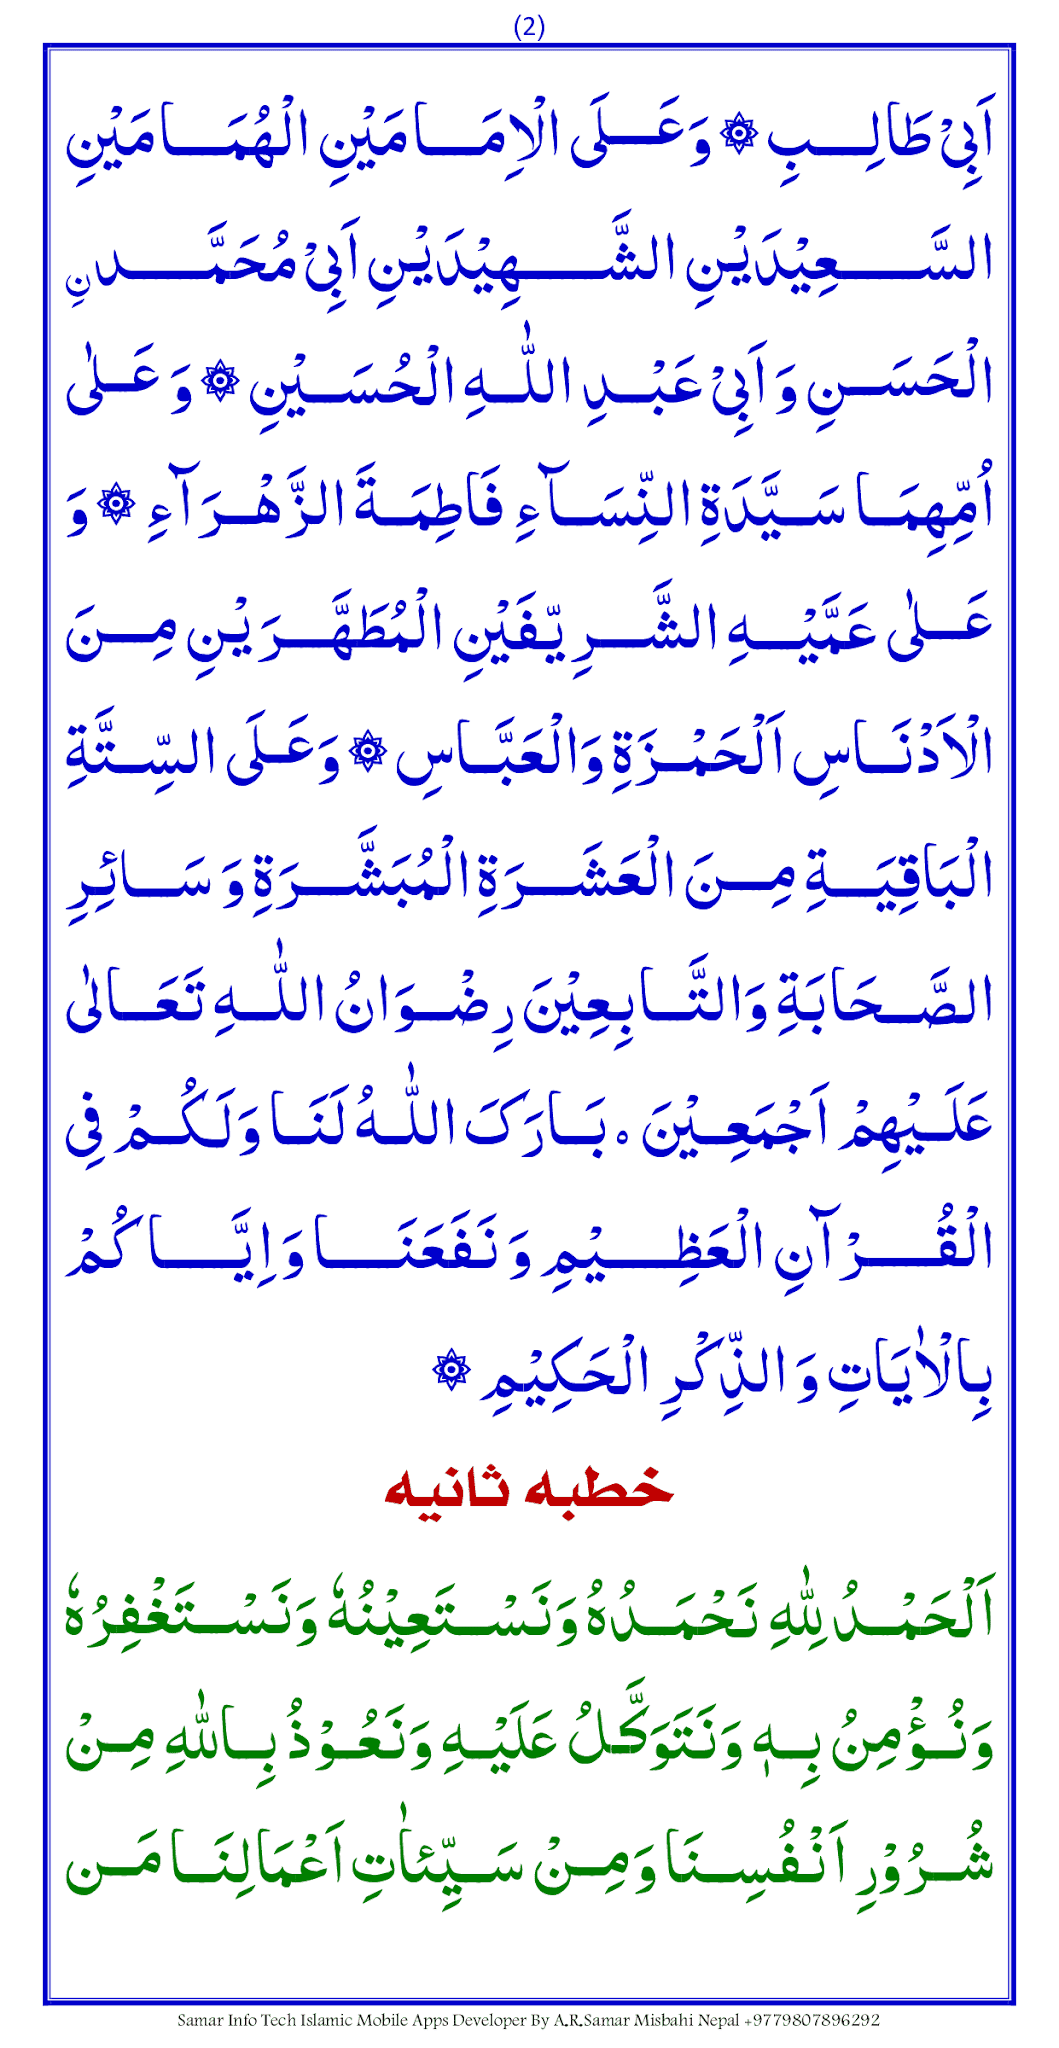 (2)
اَبِيْ طَالِبِ ۞ وَعَلَى الْاِمَامَيْنِ الْهُمَامَيْنِ
السَّعِيْدَيْنِ الشَّهِيْدَيْنِ اَبِيْ مُحَمَّدنِ
الْحَسَنِ وَ اَبِيْ عَبْدِ اللّٰهِ الْحُسَيْنِ ۞ وَ عَلٰى
اُمِّهِمَا سَيَّدَةِ النِّسَآءِ فَاطِمَةَ الزَّهْرَآءِ ۞ وَ
عَلٰى عَمَّيْهِ الشَّرِيّفَيْنِ الْمُطَهَّرَيْنِ مِنَ
الْاَدْنَاسِ اَلْحَمْزَةِ وَالْعَبَّاسِ ۞ وَعَلَى السِّتَّةِ
الْبَاقِيَةِ مِنَ الْعَشَرَةِ الْمُبَشَّرَةِ وَ سَائِرِ
الصَّحَابَةِ وَالتَّابِعِيْنَ رِضْوَانُ اللّٰهِ تَعَالٰى
عَلَيْهِمْ اَجْمَعِيْنَ ۰ بَارَكَ اللّٰهُ لَنَا وَلَكُمْ فِي
الْقُرْآنِ الْعَظِيْمِ وَ نَفَعَنَا وَ اِيَّاكُمْ
بِالْاٰيَاتِ وَ الذِّكْرِ الْحَكِيْمِ ۞
خطبه ثانيه
اَلْحَمْدُ لِلّٰهِ نَحْمَدُهُ وَنَسْتَعِيْنُهٗ وَنَسْتَغْفِرُهٗ
وَنُؤْمِنُ بِهٖ وَنَتَوَكَّلُ عَلَيْهِ وَنَعُوْذُ بِاللّٰهِ مِنْ
شُرُوْرِ اَنْفُسِنَا وَمِنْ سَيِّئاٰتِ اَعْمَالِنَا مَن
Samar Info Tech Islamic Mobile Apps Developer By A.R.Samar Misbahi Nepal +9779807896292